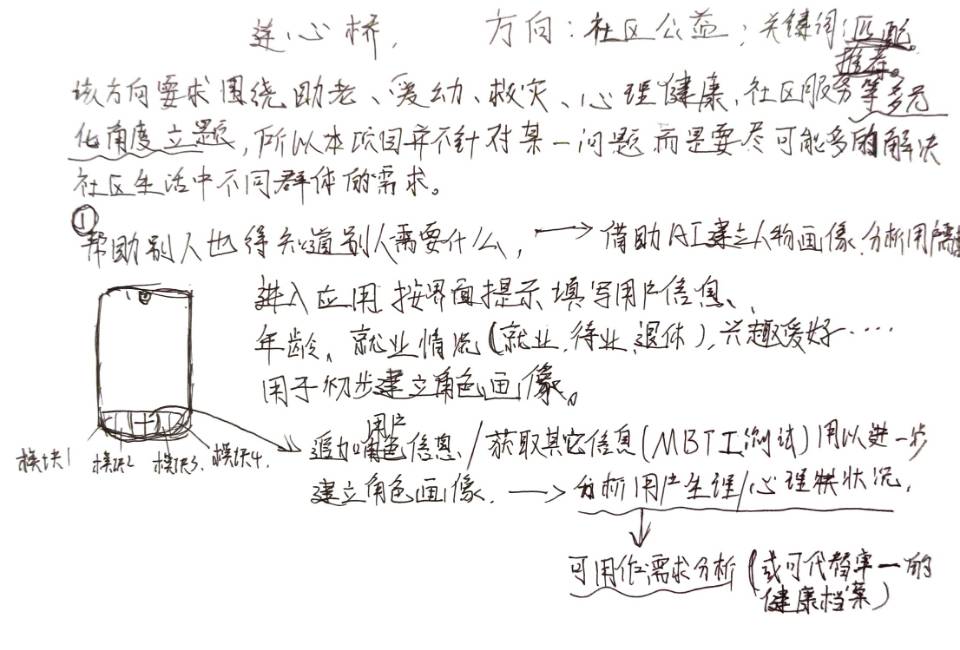 连心桥, 方向:社区公益;关键词:匹配。
推荐。
该方向要求围绕助老、爱幼、救灾、心理健康、社区服务等多元
化角度立题,所以本项目并不针对某一问题而是要尽可能多的解决
社区生活中不同群体的需求。
①
帮助别人也得知道别人需要什么, → 借助AI建立人物画像.分析用户需求
进入应用,按界面提示填写用户信息、
年龄、就业情况(就业,待业,退休),兴趣爱好····
用于初步建立角色画像。
用户
追加角色信息/获取其它信息(MBTI测试)用以进一步
模块1 模块2 模块3. 模块4.
建立角色画像. → 分析用户生理/心理状况.
可用作需求分析(或可代替单一的
健康档案)